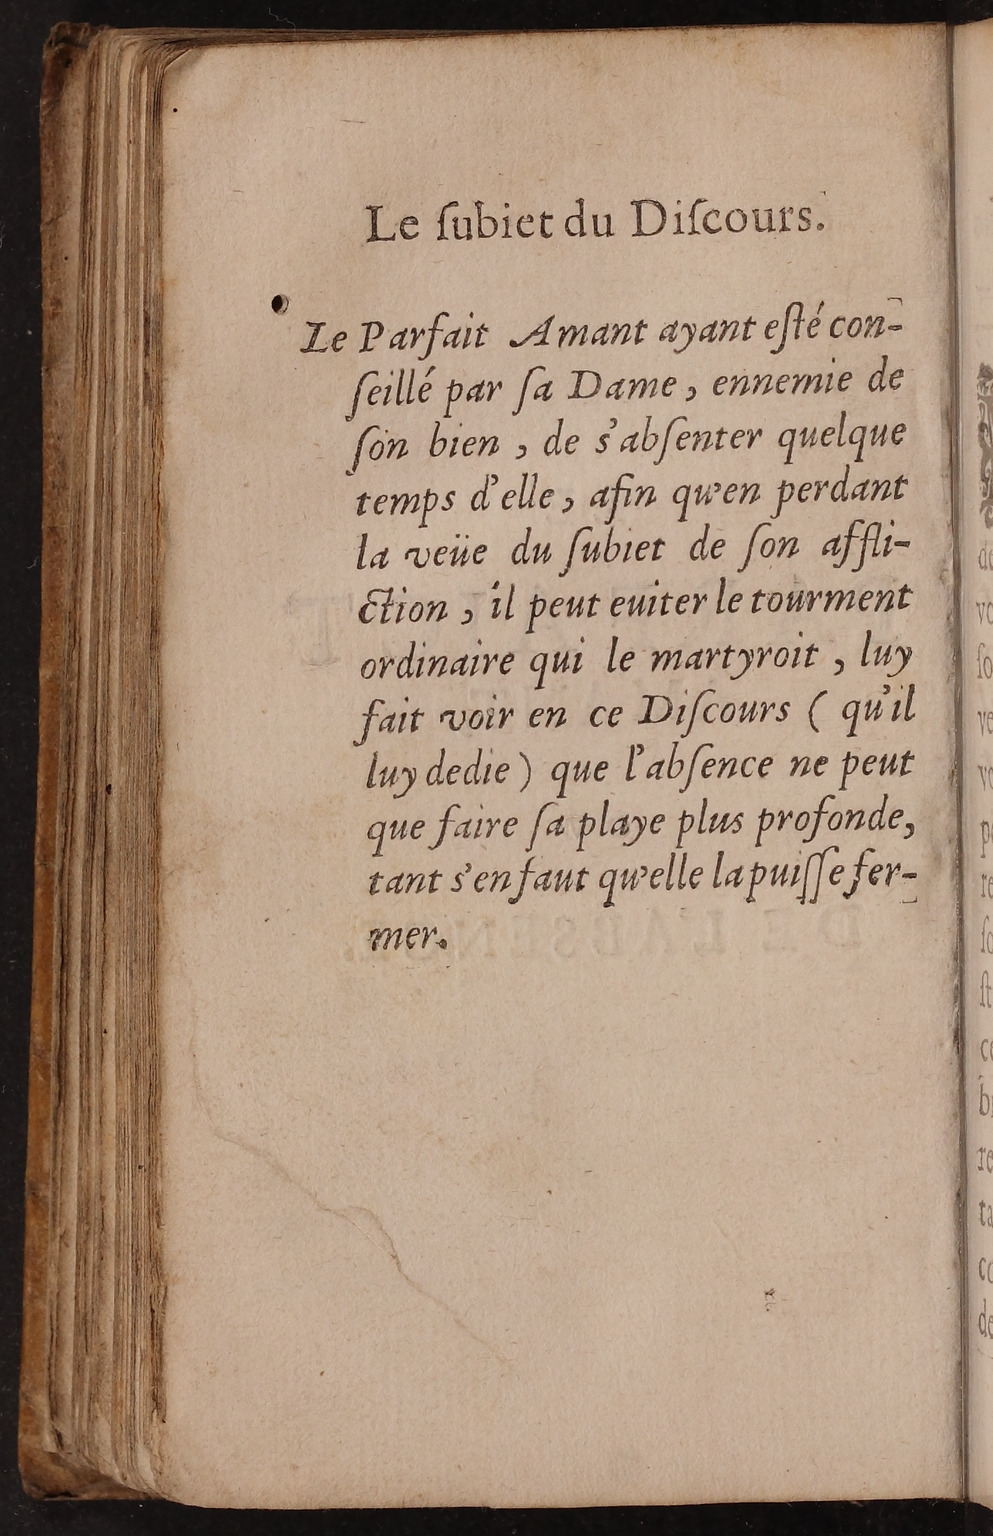 Le ſubiet du Diſcours.
Le Parfait Amant ayant eſté con-
ſeillé par ſa Dame, ennemie de
ſon bien, de s'abſenter quelque
temps d'elle, afin qu'en perdant
la veüe du ſubiet de ſon affli-
ction, il peut euiter le tourment
ordinaire qui le martyroit, luy
fait voir en ce Diſcours ( qu'il
luy dedie) que l'abſence ne peut
que faire ſa playe plus profonde,
tant s'en faut qu'elle la puiſſe fer-
mer.